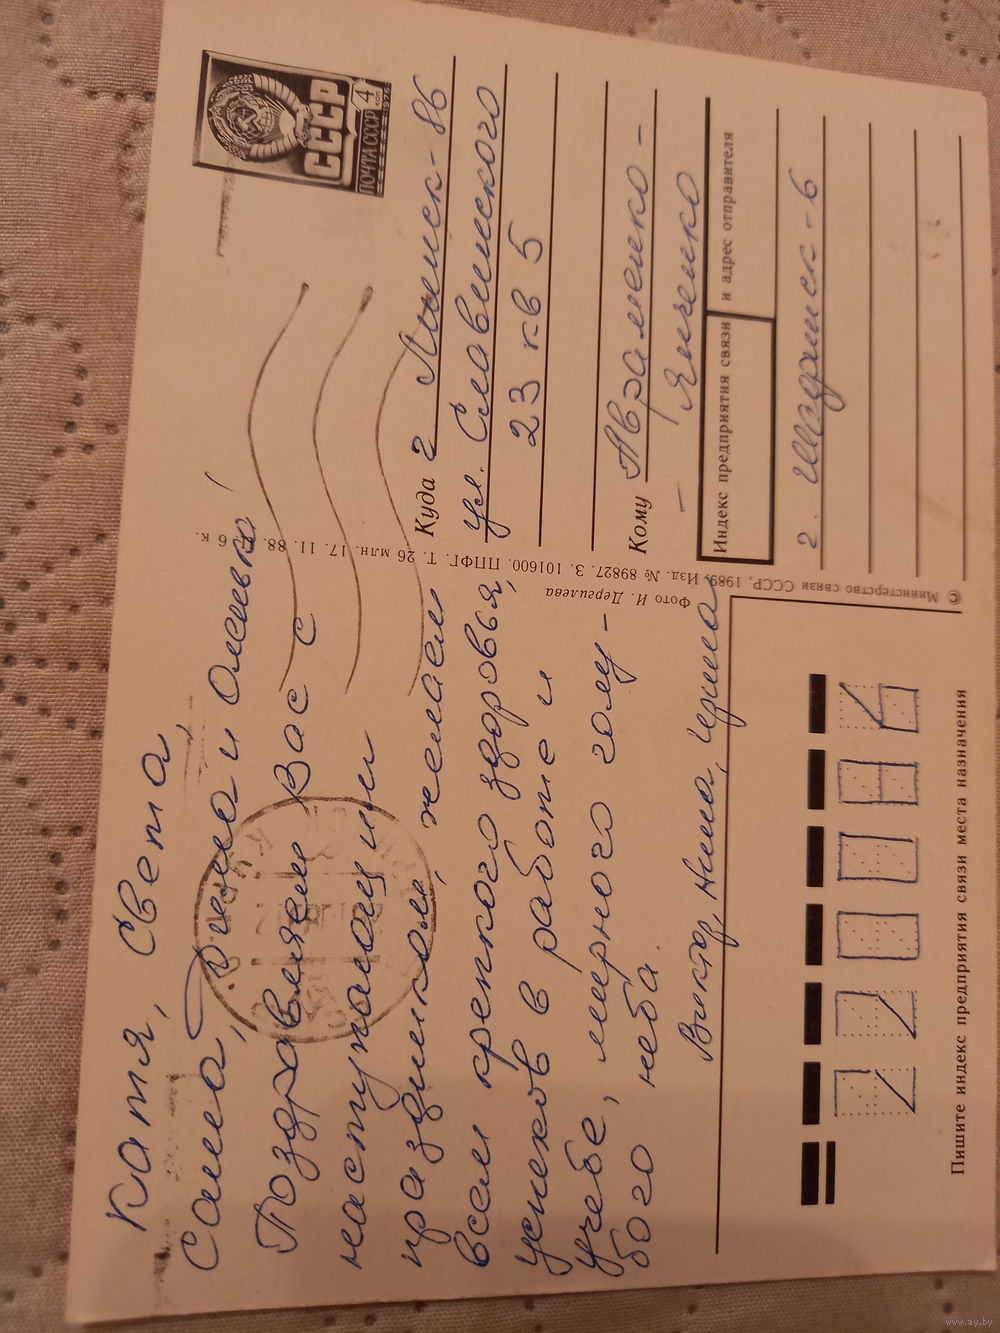 Катя, Света,
Саша, Дима и Олежка!
Поздравляем Вас с
наступающим
праздником, желаем
всем крепкого здоровья,
успехов в работе и
учебе, мирного голу-
бого неба.
Виктор, Нина, Ирина
Фото И. Дергилева
© Министерство связи СССР, 1989. Изд. № 89827. З. 101600. ППФГ. Т. 26 млн. 17. 11. 88. Ц. 6 к.
СССР
ПОЧТА СССР
4
коп
Куда г Минск-86
ул. Славинского
23 кв 5
Кому Авраменко-
- Янченко
Индекс предприятия связи и адрес отправителя
г. Шадринск-6
Пишите индекс предприятия связи места назначения
www.ay.by